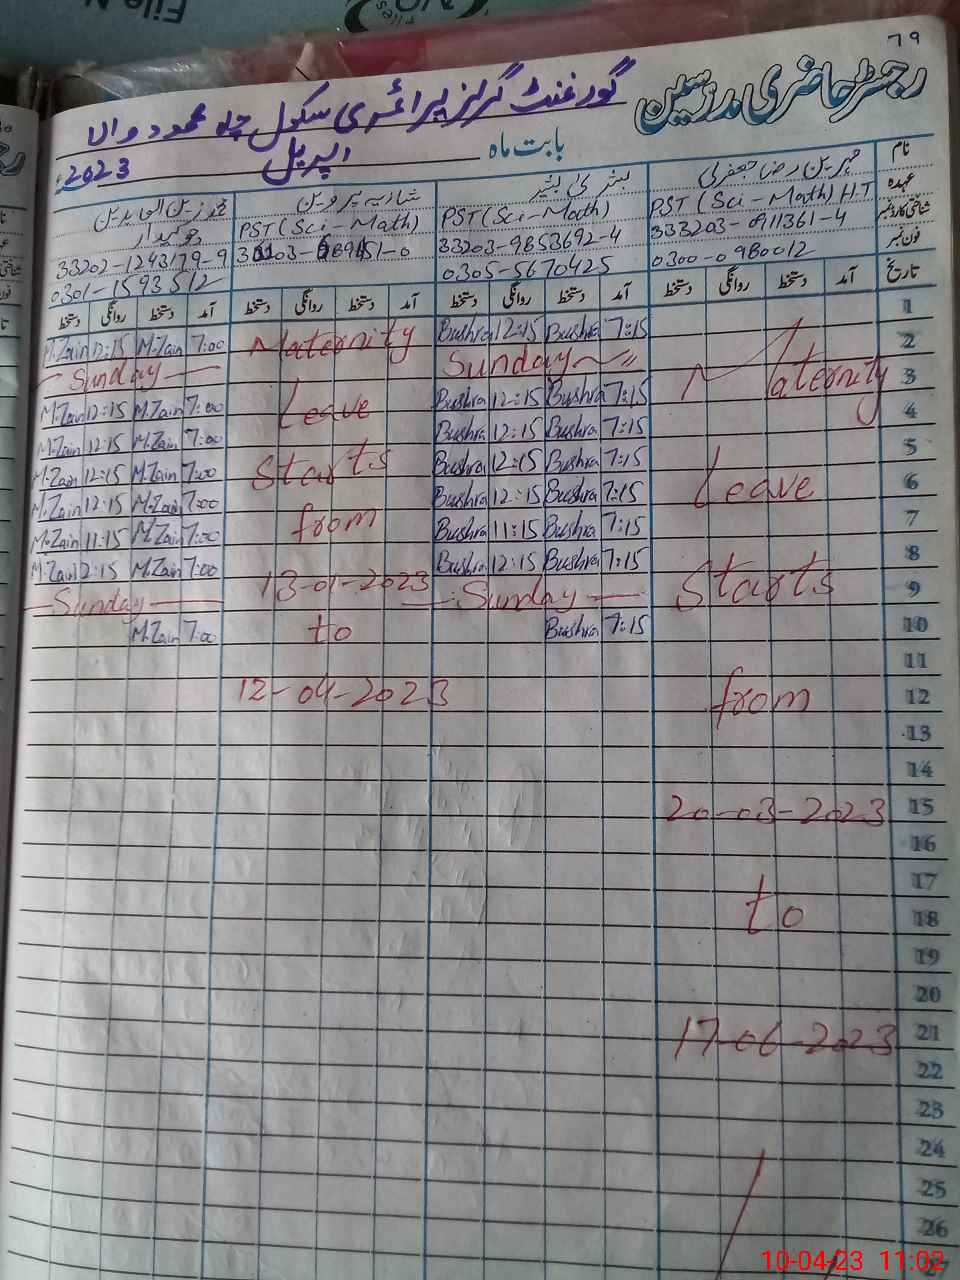 File N
Files
79
رجسٹر حاضری مدرسین
گورنمنٹ گرلز پرائمری سکول چاہ محمود والا
بابت ماہ اپریل 2023ء
نام مہرین رضا جعفری بشریٰ بشیر شازیہ پروین محمد زین العابدین
عہدہ PST (Sci-Math) H.T PST (Sci-Math) PST (Sci-Math) چوکیدار
شناختی کارڈ نمبر 333203-0911361-4 33203-9853692-4 33202-1243179-9
فون نمبر 0300-0980012 0305-5670425 0301-1593512
تاریخ آمد دستخط روانگی دستخط آمد دستخط روانگی دستخط آمد دستخط روانگی دستخط آمد دستخط روانگی دستخط
M.Zain 12:15 M.Zain 7:00 Maternity Bushra 12:15 Bushra 7:15 1
Sunday Sunday 2
M.Zain 12:15 M.Zain 7:00 Leave Bushra 12:15 Bushra 7:15 Maternity 3
M.Zain 12:15 M.Zain 7:00 Bushra 12:15 Bushra 7:15 4
M.Zain 12:15 M.Zain 7:00 Starts Bushra 12:15 Bushra 7:15 5
M.Zain 12:15 M.Zain 7:00 Bushra 12:15 Bushra 7:15 Leave 6
M.Zain 11:15 M.Zain 7:00 from Bushra 11:15 Bushra 7:15 7
M.Zain 12:15 M.Zain 7:00 Bushra 12:15 Bushra 7:15 8
Sunday 13-01-2023 Sunday Starts 9
M.Zain 7:00 to Bushra 7:15 10
11
12-04-2023 from 12
13
14
20-03-2023 15
16
17
to 18
19
20
17-06-2023 21
22
23
24
25
26
27
10-04-23 11:02